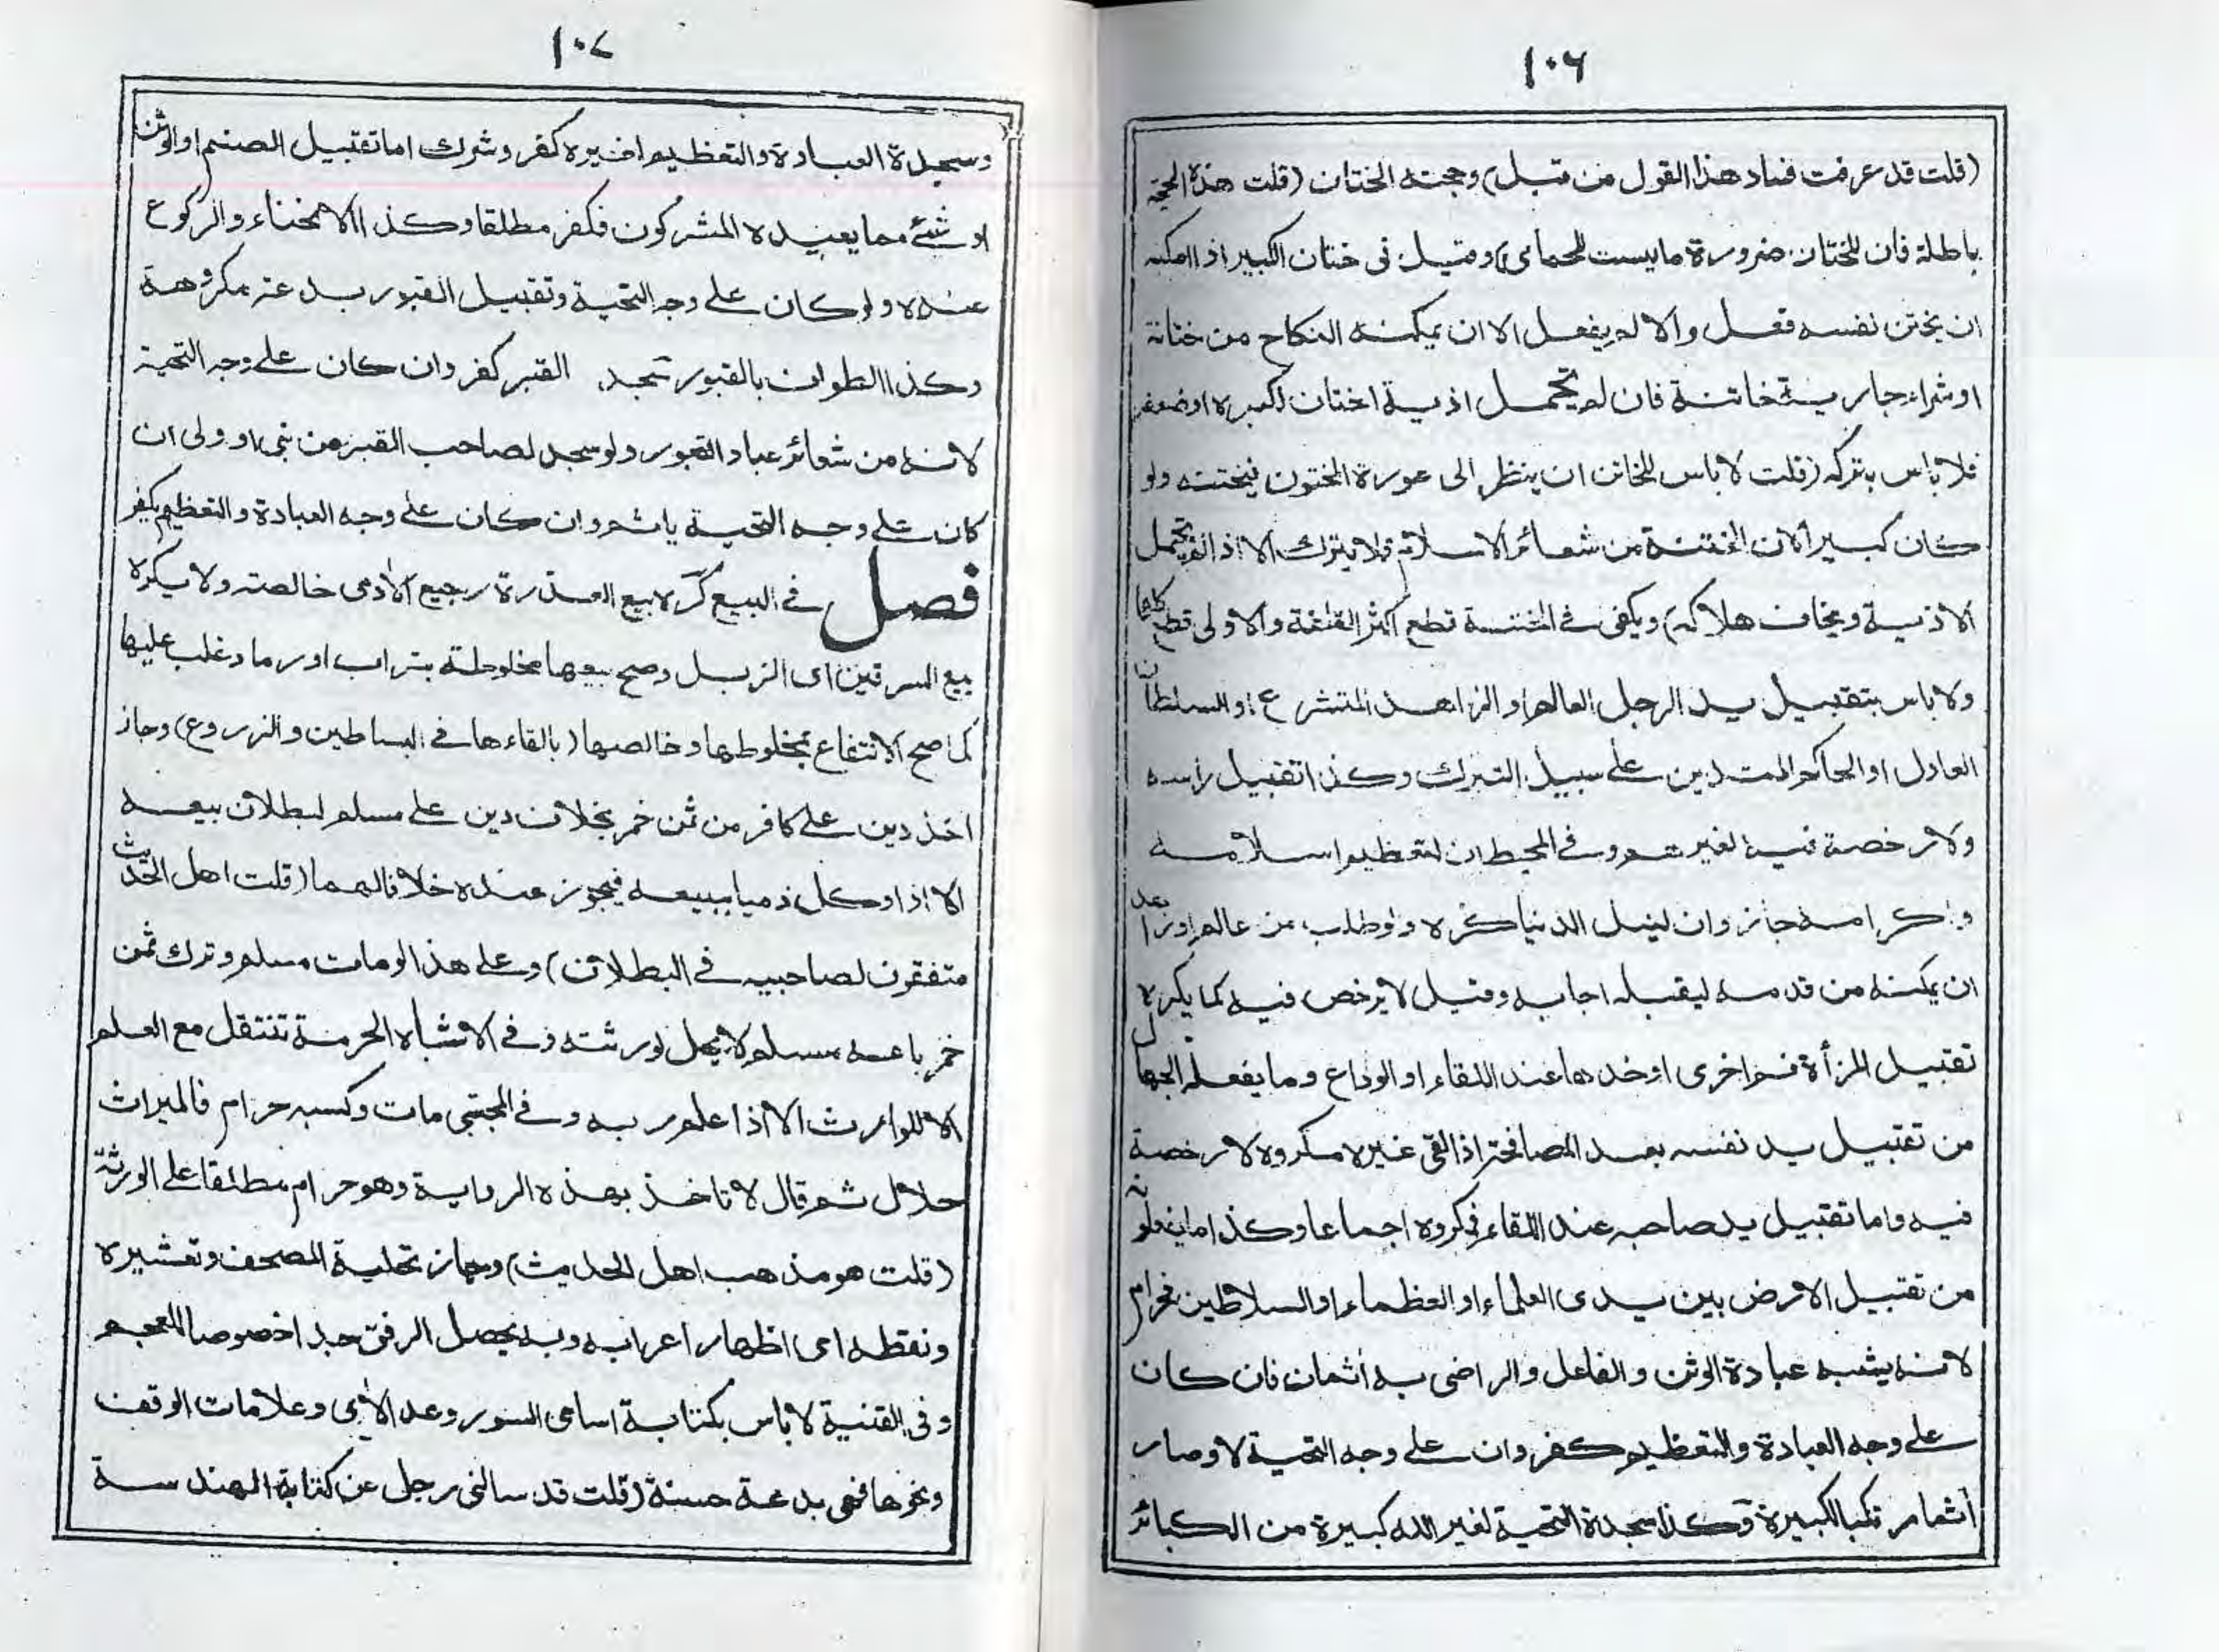 ١٠٦
(قلت قد عرفت فساد هذا القول من قبل) وحجته الختان (قلت هذه الحجة
باطلة فان للختان ضرورة ما ليست للحمامى) وقيل فى ختان الكبير اذا امكنه
ان يختن نفسه فعل والا لم يفعل الا ان يمكنه النكاح من ختانة
او شراء جارية ختانة فان لم يتحمل اذية اختتان لكبره او ضعف
فلا باس بتركه (قلت لا باس للخاتن ان ينظر الى عورة المختون فيختنه ولو
كان كبيرا لان الختنة من شعائر الاسلام فلا يترك الا اذا لم يتحمل
الاذية ويخاف هلاكه) ويكفى فے الختنة قطع اكثر القلفة والاولى قطع كلها
ولا باس بتقبيل يد الرجل العالم او الزاهد المتشرع او السلطان
العادل او الحاكم المتدين علے سبيل التبرك وكذا تقبيل راسه
ولا رخصة فيه لغيرهم وفے المحيط ان لتعظيم اسلامه
واكرامه جاز وان لنيل الدنيا كره ولو طلب من عالم او زاهد
ان يمكنه من قدمه ليقبله اجابه وقيل لا يرخص فيه كما يكره
تقبيل المرأة فم اخرى او خدها عند اللقاء او الوداع وما يفعله الجهال
من تقبيل يد نفسه بعد المصافحة اذا لقى غيره مكروه لا رخصة
فيه واما تقبيل يد صاحبه عند اللقاء فمكروه اجماعا وكذا ما يفعلونه
من تقبيل الارض بين يدى العلماء او العظماء او السلاطين فحرام
لانه يشبه عبادة الوثن والفاعل والراضى به أثمان فان كان
علے وجه العبادة والتعظيم كفر وان علے وجه التحية لا وصار
أثما مرتكبا الكبيرة وكذا سجدة التحية لغير الله كبيرة من الكبائر
١٠٧
وسجدة العبادة والتعظيم لغيره كفر وشرك اما تقبيل الصنم او الوثن
او شئے مما يعبده المشركون فكفر مطلقا وكذا الانحناء والركوع
عنده ولو كان علے وجه التحية وتقبيل القبور بدعة مكروهة
وكذا الطواف بالقبور سجد القبر كفر وان كان علے وجه التحية
لانه من شعائر عباد القبور ولو سجد لصاحب القبر من نبى او ولى ان
كان علے وجه التحية ياثم وان كان علے وجه العبادة والتعظيم يكفر
فصل فے البيع كره بيع العذرة رجيع الآدمى خالصة ولا يكره
بيع السرقين اى الزبل وصح بيعها مخلوطة بتراب او رماد غلب عليها
كما صح الانتفاع بمخلوطها وخالصها (بالقاءها فے البساطين والزروع) وجاز
اخذ دين علے كافر من ثمن خمر بخلاف دين علے مسلم لبطلان بيعه
الا اذا وكل ذميا ببيعه فيجوز عنده خلافا لهما (قلت اهل الحديث
متفقون لصاحبيه فے البطلان) وعلے هذا لو مات مسلم وترك ثمن
خمر باعه مسلم لا يحل لورثته وفے الاشباه الحرمة تنتقل مع العلم
الا للوارث الا اذا علم ربه وفے المجتبى مات وكسبه حرام فالميراث
حلال ثم قال لا ناخذ بهذه الرواية وهو حرام مطلقا علے الورثة
(قلت هو مذهب اهل الحديث) وجاز تحلية المصحف وتعشيره
ونقطه اى اظهار اعرابه وبه يحصل الرفق جدا خصوصا للعجم
وفى القنية لا باس بكتابة اسامى السور وعد الآى وعلامات الوقف
ونحوها فهى بدعة حسنة (قلت قد سالنى رجل عن كتابة الهندسة